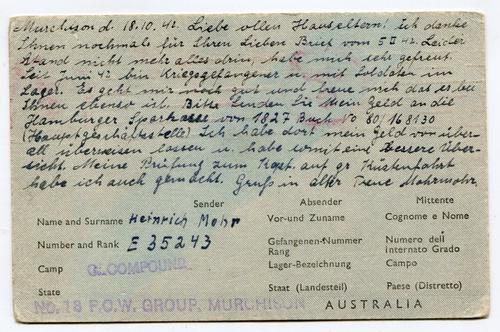 Murchison d. 18.10.42. Liebe ollen Hauseltern! ich danke
Ihnen nochmals für Ihren Lieben Brief vom 5 II 42. Leider
stand nicht mehr alles drin, habe mich sehr gefreut
Seit Juni 42 bin Kriegsgefangener u. mit Soldaten im
Lager. Es geht mir noch gut und freue mich das es bei
Ihnen ebenso ist. Bitte senden Sie Mein Geld an die
Hamburger Sparkasse von 1827 Buch No 80/168130
(Hauptgeschäftstelle) Ich habe dort mein Geld von über-
all überweisen lassen u. habe somit eine bessere Über-
sicht. Meine Prüfung zum auf gr Küstenfahrt
habe ich auch gemacht. Gruß in alter Treue Mohrmohr
Sender Absender Mittente
Name and Surname Heinrich Mohr Vor-und Zuname Cognome e Nome
Number and Rank E 35243 Gefangenen-Nummer Rang Numero dell internato Grado
Camp C. COMPOUND Lager-Bezeichnung Campo
State Staat (Landesteil) Paese (Distretto)
No. 13 P.O.W. GROUP, MURCHISON AUSTRALIA